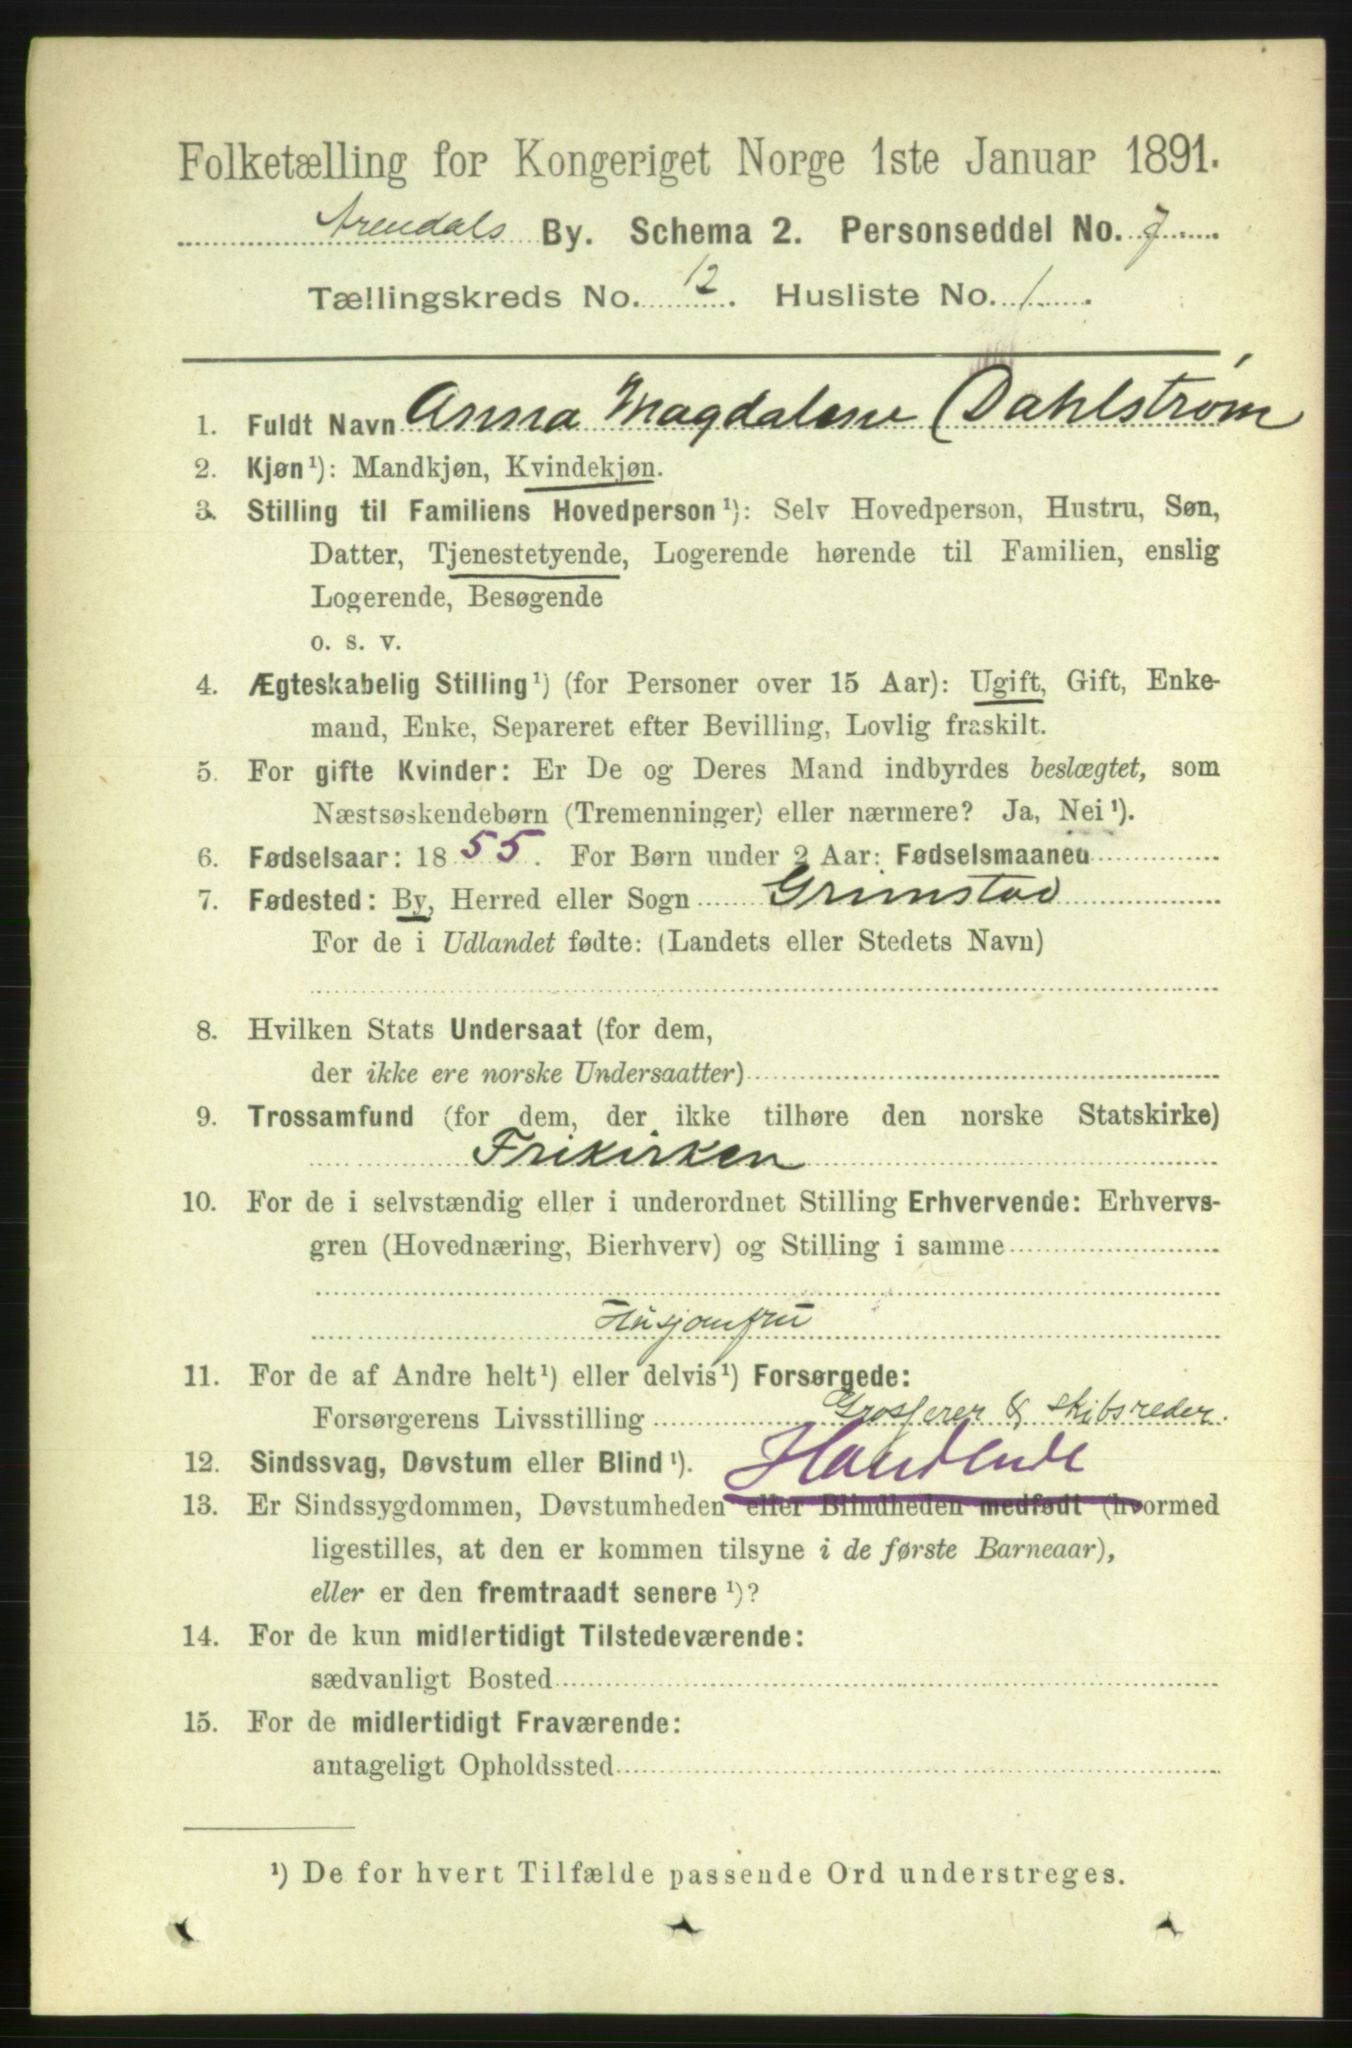 Folketælling for Kongeriget Norge 1ste Januar 1891.
Arendals By. Schema 2. Personseddel No. 7
Tællingskreds No. 12. Husliste No. 1.
1. Fuldt Navn Anna Magdalene Dahlstrøm
2. Kjøn¹): Mandkjøn, Kvindekjøn.
3. Stilling til Familiens Hovedperson¹): Selv Hovedperson, Hustru, Søn,
Datter, Tjenestetyende, Logerende hørende til Familien, enslig
Logerende, Besøgende
o. s. v.
4. Ægteskabelig Stilling¹) (for Personer over 15 Aar): Ugift, Gift, Enke-
mand, Enke, Separeret efter Bevilling, Lovlig fraskilt.
5. For gifte Kvinder: Er De og Deres Mand indbyrdes beslægtet, som
Næstsøskendebørn (Tremenninger) eller nærmere? Ja, Nei¹).
6. Fødselsaar: 1855. For Børn under 2 Aar: Fødselsmaaned
7. Fødested: By, Herred eller Sogn Grimstad
For de i Udlandet fødte: (Landets eller Stedets Navn)
8. Hvilken Stats Undersaat (for dem,
der ikke ere norske Undersaatter)
9. Trossamfund (for dem, der ikke tilhøre den norske Statskirke)
Frikirken
10. For de i selvstændig eller i underordnet Stilling Erhvervende: Erhvervs-
gren (Hovednæring, Bierhverv) og Stilling i samme
Husjomfru
11. For de af Andre helt¹) eller delvis¹) Forsørgede:
Forsørgerens Livsstilling Grosserer & Skibsreder.
12. Sindssvag, Døvstum eller Blind¹). Handlende
13. Er Sindssygdommen, Døvstumheden eller Blindheden medfødt (hvormed
ligestilles, at den er kommen tilsyne i de første Barneaar),
eller er den fremtraadt senere¹)?
14. For de kun midlertidigt Tilstedeværende:
sædvanligt Bosted
15. For de midlertidigt Fraværende:
antageligt Opholdssted
¹) De for hvert Tilfælde passende Ord understreges.